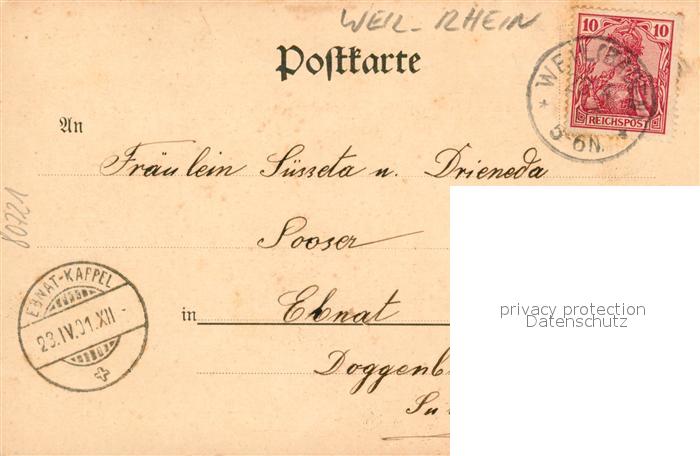 WEIL - RHEIN
Postkarte
10 10
REICHSPOST
WEIL
5-6N.
An
Fräulein Süsseta u. Drieneda
Sooser
in Ebnat
Doggenb
80721
EBNAT-KAPPEL
23.IV.01.XII-
privacy protection
Datenschutz